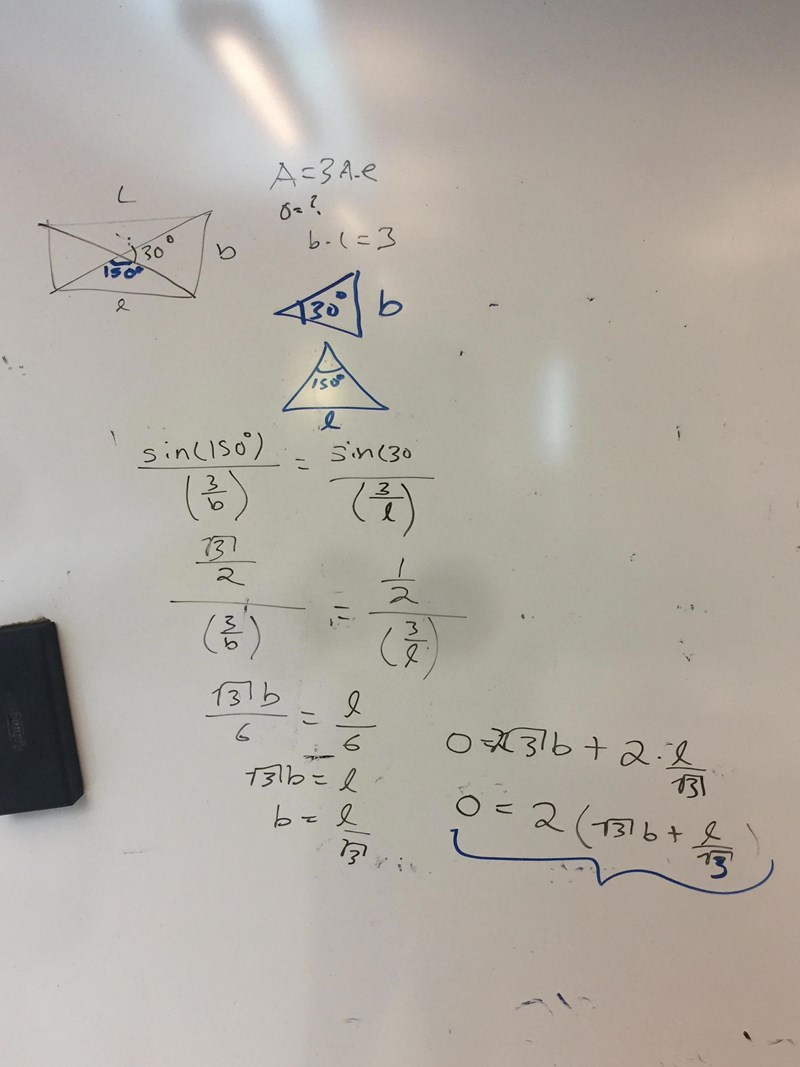 L
30°
b
150°
l
A=3A.e
O=?
b·l=3
30°
b
150°
l
sin(150°) / (3/b) = sin(30 / (3/l)
√3/2 / (3/b) = 1/2 / (3/l)
√3 b / 6 = l / 6
√3 b = l
b = l / √3
O = 2√3 b + 2 · l / √3
O = 2 (√3 b + l / √3)